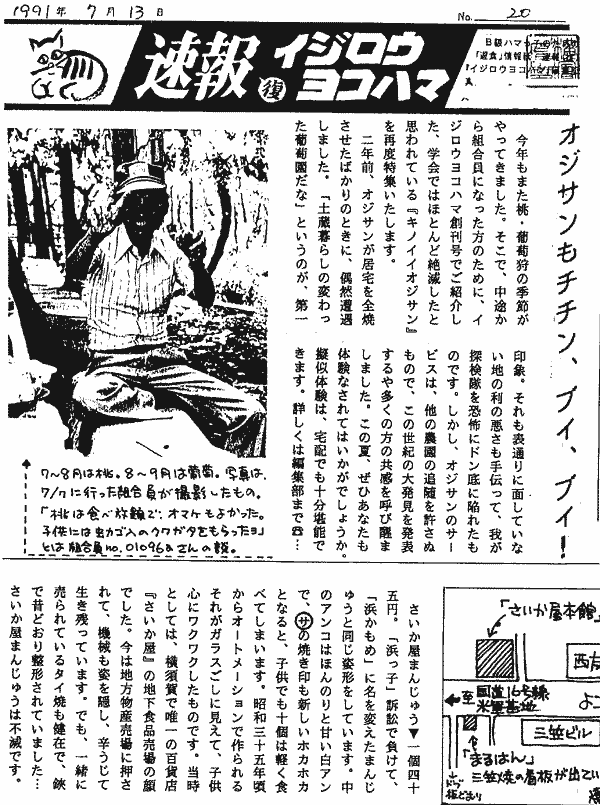 1991年 7月 13日
No. 20
速報
復
イジロウ
ヨコハマ
B級ハマっ子のための
『イジロウヨコハマ』
オジサンもチチン、ブイ、ブイ！
今年もまた桃・葡萄狩の季節が
やってきました。そこで、中途か
ら組合員になった方のために、イ
ジロウヨコハマ創刊号でご紹介し
た、学会ではほとんど絶滅したと
思われている『キノイイオジサン』
を再度特集いたします。
二年前、オジサンが居宅を全焼
させたばかりのときに、偶然遭遇
しました。「土蔵暮らしの変わっ
た葡萄園だな」というのが、第一
印象。それも表通りに面していな
い地の利の悪さも手伝って、我が
探検隊を恐怖にドン底に陥れたも
のです。しかし、オジサンのサー
ビスは、他の農園の追随を許さぬ
もので、この世紀の大発見を発表
するや多くの方の共感を呼び醒ま
しました。この夏、ぜひあなたも
体験なされてはいかがでしょうか。
擬似体験は、宅配でも十分堪能で
きます。詳しくは編集部まで☎…
7〜8月は桃。8〜9月は葡萄。写真は、
7/7に行った組合員が撮影したもの。
「桃は食べ放題で、オマケもよかった。
子供には虫カゴ入のクワガタをもらったヨ」
とは組合員no.01096aさんの談。
さいか屋まんじゅう▼一個四十
五円。「浜っ子」訴訟で負けて、
「浜かもめ」に名を変えたまんじ
ゅうと同じ姿形をしています。中
のアンコはほんのりと甘い白アン
で、サの焼き印も新しいホカホカ
となると、子供でも十個は軽く食
べてしまいます。昭和三十五年頃
からオートメーションで作られる
それがガラスごしに見えて、子供
心にワクワクしたものです。当時
としては、横須賀で唯一の百貨店
『さいか屋』の地下食品売場の顔
でした。今は地方物産売場に押さ
れて、機械も姿を隠し、辛うじて
生き残っています。でも、一緒に
売られているタイ焼も健在で、鋏
で昔どおり整形されていました…
さいか屋まんじゅうは不滅です。
「さいか屋本館」
西友
至 国道16号線
米軍基地
よこ
三笠ビル
「まるはん」
三笠焼の看板が出てい
板どおり